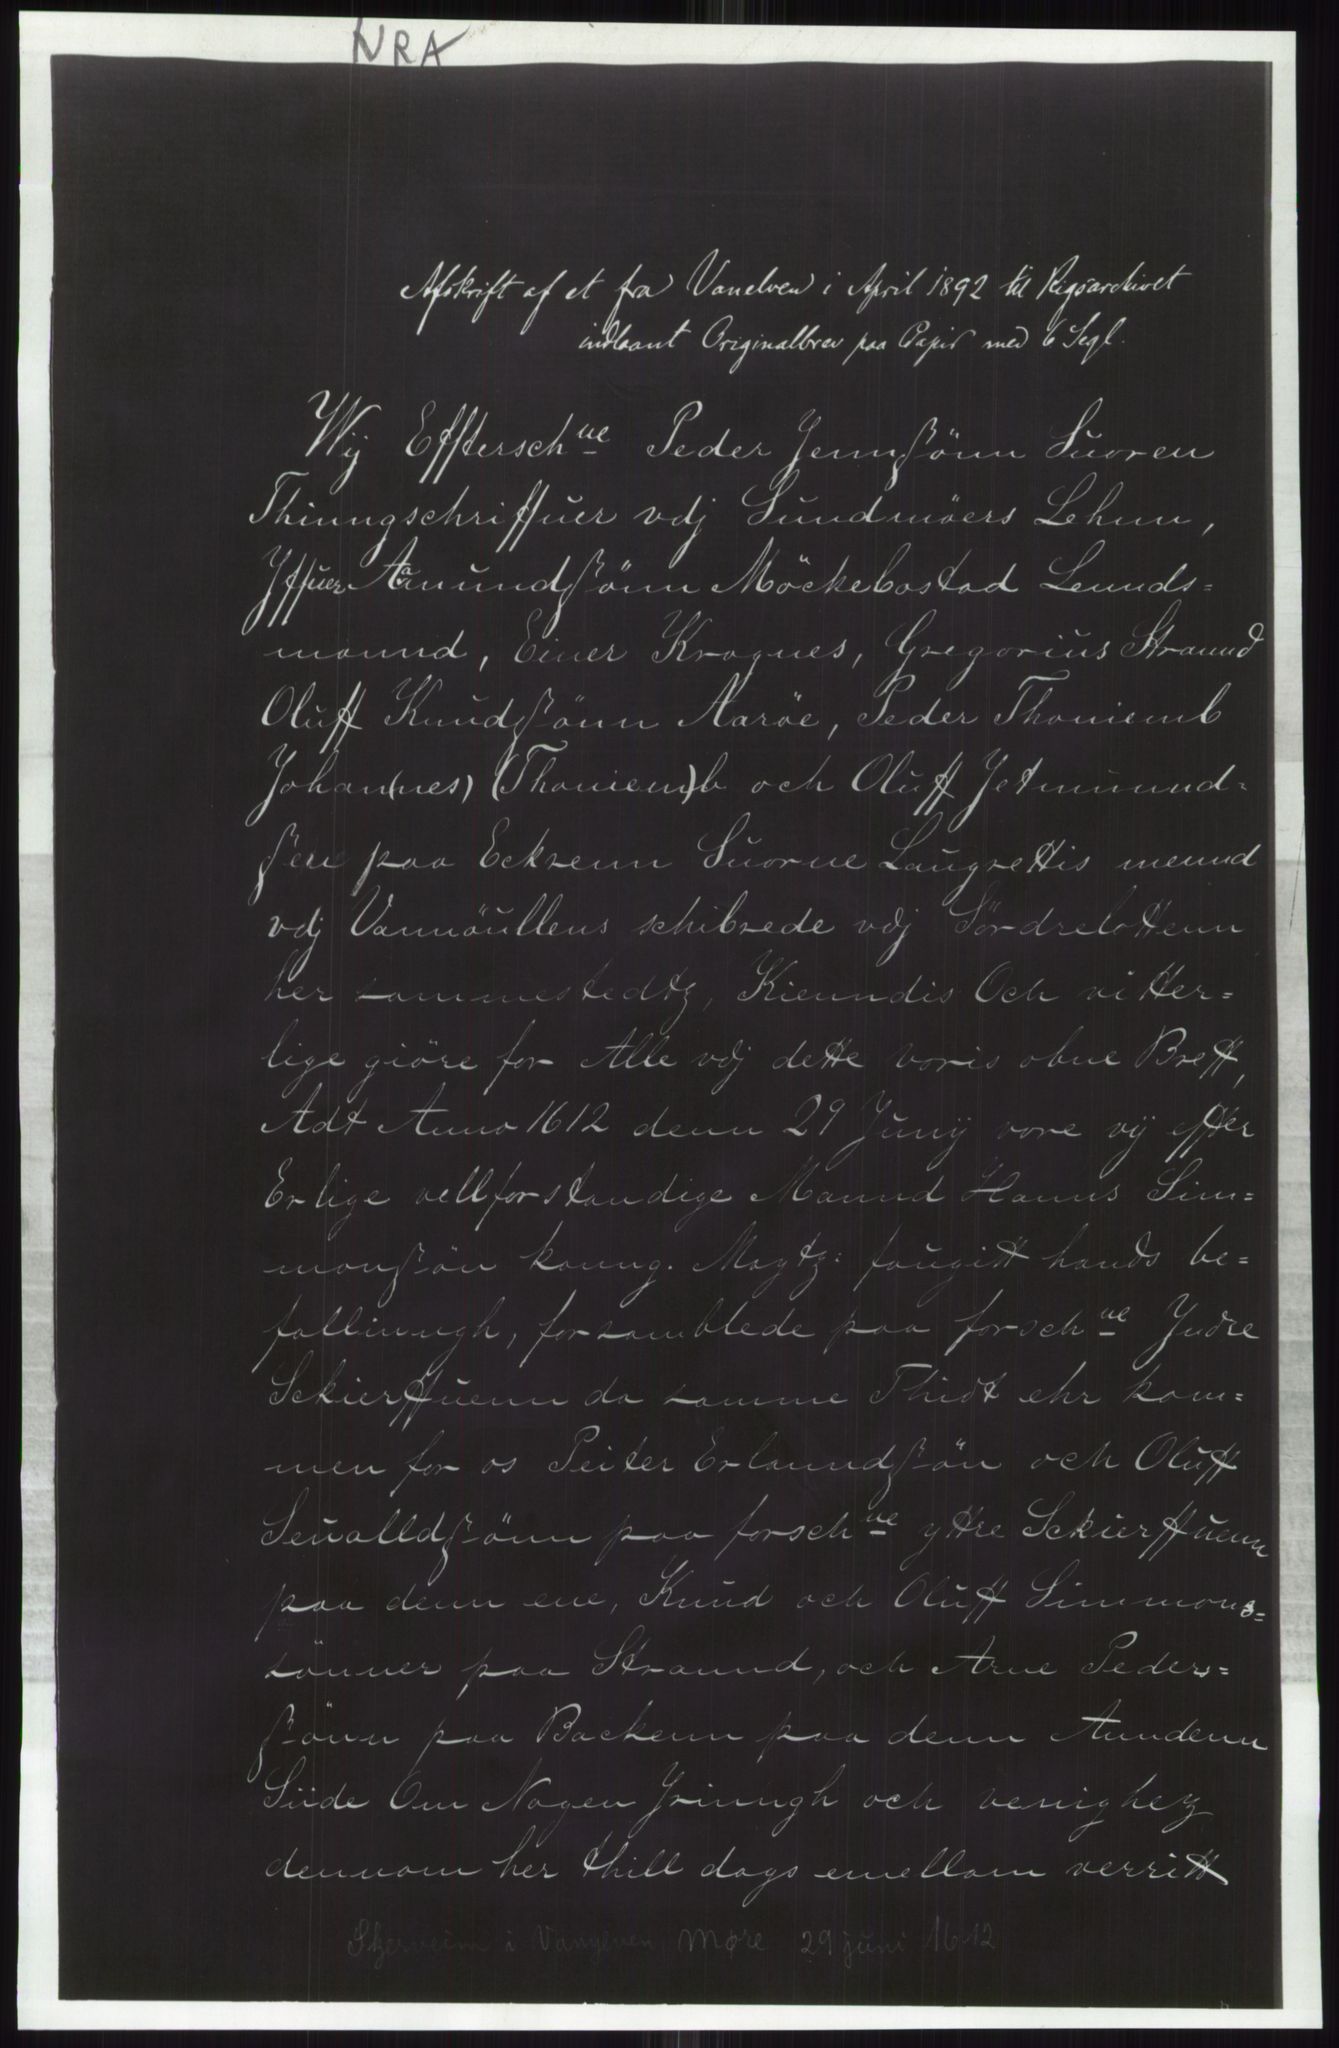 NRA
Afskrift af et fra Vanelven i April 1892 til Rigsarchivet
indlaant Originalbrev paa Papir med 6 Segl.
Wij Efftersch<sup>ne</sup> Peder Jennßönn Suoren
Thinngschriffuer vdj Sundmöers Lehnn,
Jffuer Aamundßönn Möckebostad Lennds=
mannd, Einer Krognes, Gregorius Strannd
Oluff Knudßönn Aaröe, Peder Thoniemb
Johan(nes) (Thoniem)b och Oluff Jetmunnd=
ßen paa Eckrenn Suorne Laugrettis mennd
vdj Vannöullens schibrede vdj Sördrelottenn
her sammestedtz, Kienndis Och vitter=
lige giöre for Alle vdj dette voris obne Breff,
Adt Anno 1612 denn 29 Junij vore vij effter
Erlige vellforstandige Mannd Hanns Sim=
monßön konng. Maytz: fougitt hands be=
fallinngh, forsamblede paa forsch<sup>ne</sup> Yndre
Sckierffuenn da samme Thidt ehr kom=
men for os Peiter Erlanndßön och Oluff
Seualldßönn paa forsch<sup>ne</sup> yttre Sckierffuenn
paa denn ene, Knud och Oluff Simmons=
sönner paa Strannd, och Arne Peders=
ßönn paa Backenn paa denn Anndenn
Siide Om Nogen Jrinngh och venighez
dennom her thill dags emellom verritt
Skjerveim i Vanylven, Møre 29 juni 1612